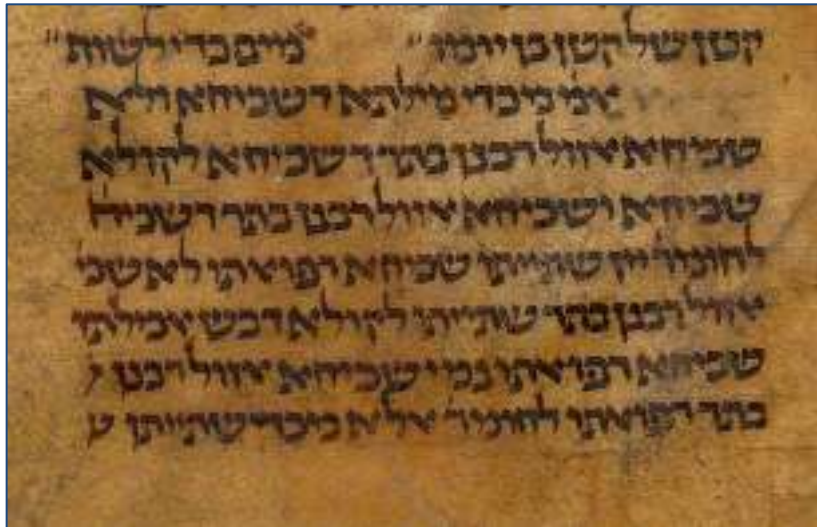 קטן של קטן בן יומו״ מים כדי לשות״
אמ׳ מכדי מילתא דשכיחא ולא
שכיחא אזול רבנן בתר דשכיחא לקולא
שכיחא ושכיחא אזול רבנן בתר דשכיח
לחומר יין שתייתו שכיחא רפואתו לא שכי
אזול רבנן בתר שתייתו לקולא דבש אכילתו
שכיחא רפואתו נמי שכיחא אזול רבנן
בתר רפואתו לחומר אלא מכדי שתייתן ש